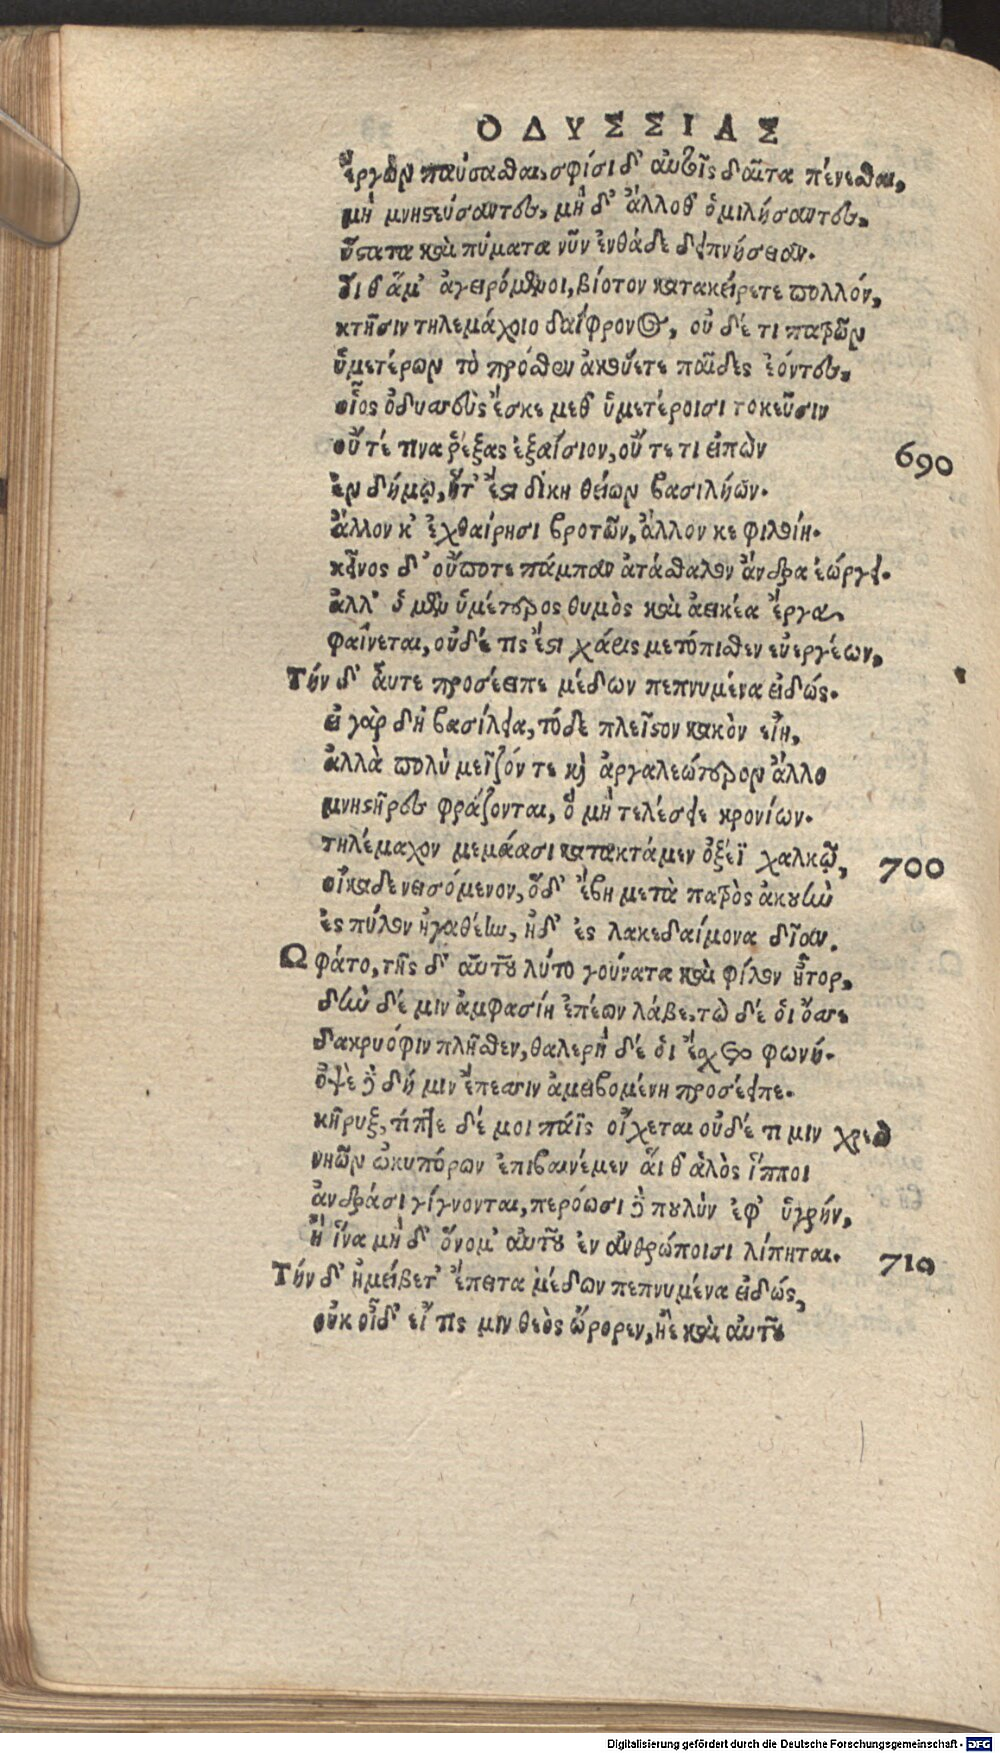 ΟΔΥΣΣΙΑΣ
ἔργων παύσασθαι, σφίσι δ' αὐτῖς δαῖτα πένεσθαι,
μὴ μνηστεύσαντες, μὴ δ' ἄλλοθ' ὁμιλήσαντες,
ὕστατα καὶ πύματα νῦν ἐνθάδε δειπνήσειαν.
Οἳ θ' ἅμ' ἀγειρόμενοι, βίοτον κατακείρετε πολλόν,
κτῆσιν τηλεμάχοιο δαΐφρονος, οὐ δέ τι πατρῶν
ὑμετέρων τὸ πρόσθεν ἀκούετε παῖδες ἐόντες,
οἷος ὀδυσσεὺς ἔσκε μεθ' ὑμετέροισι τοκεῦσιν
οὔτέ τινα ῥέξας ἐξαίσιον, οὔ τε τι εἰπὼν
690
ἐν δήμῳ, ἥτ' ἔστι δίκη θείων βασιλήων.
ἄλλον κ' ἐχθαίρησι βροτῶν, ἄλλον κε φιλοίη.
κεῖνος δ' οὔποτε πάμπαν ἀτάσθαλον ἄνδρα ἐώργει.
ἀλλ' ὁ μὲν ὑμέτερος θυμὸς καὶ ἀεικέα ἔργα,
φαίνεται, οὐδέ τις ἔστι χάρις μετόπισθεν εὐεργέων,
Τήν δ' αὖτε προσέειπε μέδων πεπνυμένα εἰδώς.
εἰ γὰρ δὴ βασίλεια, τόδε πλεῖστον κακὸν εἴη,
ἀλλὰ πολὺ μεῖζόν τε καὶ ἀργαλεώτερον ἄλλο
μνηστῆρες φράζονται, ὃ μὴ τελέσειε κρονίων.
τηλέμαχον μεμάασι κατακτάμεν ὀξέϊ χαλκῷ,
700
οἴκαδε νεισόμενον, ὅδ' ἔβη μετὰ πατρὸς ἀκουὴν
ἐς πύλον ἠγαθέην, ἠδ' ἐς λακεδαίμονα δῖαν.
Ως φάτο, τῆς δ' αὐτοῦ λύτο γούνατα καὶ φίλον ἦτορ,
δὴν δέ μιν ἀμφασίη ἐπέων λάβε, τὼ δέ οἱ ὄσσε
δακρυόφιν πλῆσθεν, θαλερὴ δέ οἱ ἔσχετο φωνή.
ὀψὲ δὲ δή μιν ἔπεσσιν ἀμειβομένη προσέειπε.
κῆρυξ, τίπτε δέ μοι πάϊς οἴχεται οὐδέ τι μιν χρεὼ
νηῶν ὠκυπόρων ἐπιβαινέμεν αἵ θ' ἁλὸς ἵπποι
ἀνδράσι γίγνονται, περόωσι δὲ πουλὺν ἐφ' ὑγρήν,
ἢ ἵνα μὴ δ' ὄνομ' αὐτοῦ ἐν ἀνθρώποισι λίπηται.
710
Τήν δ' ἠμείβετ' ἔπειτα μέδων πεπνυμένα εἰδώς,
οὐκ οἶδ' εἴ τις μιν θεὸς ὤρορεν, ἠὲ καὶ αὐτοῦ
Digitalisierung gefördert durch die Deutsche Forschungsgemeinschaft - DFG